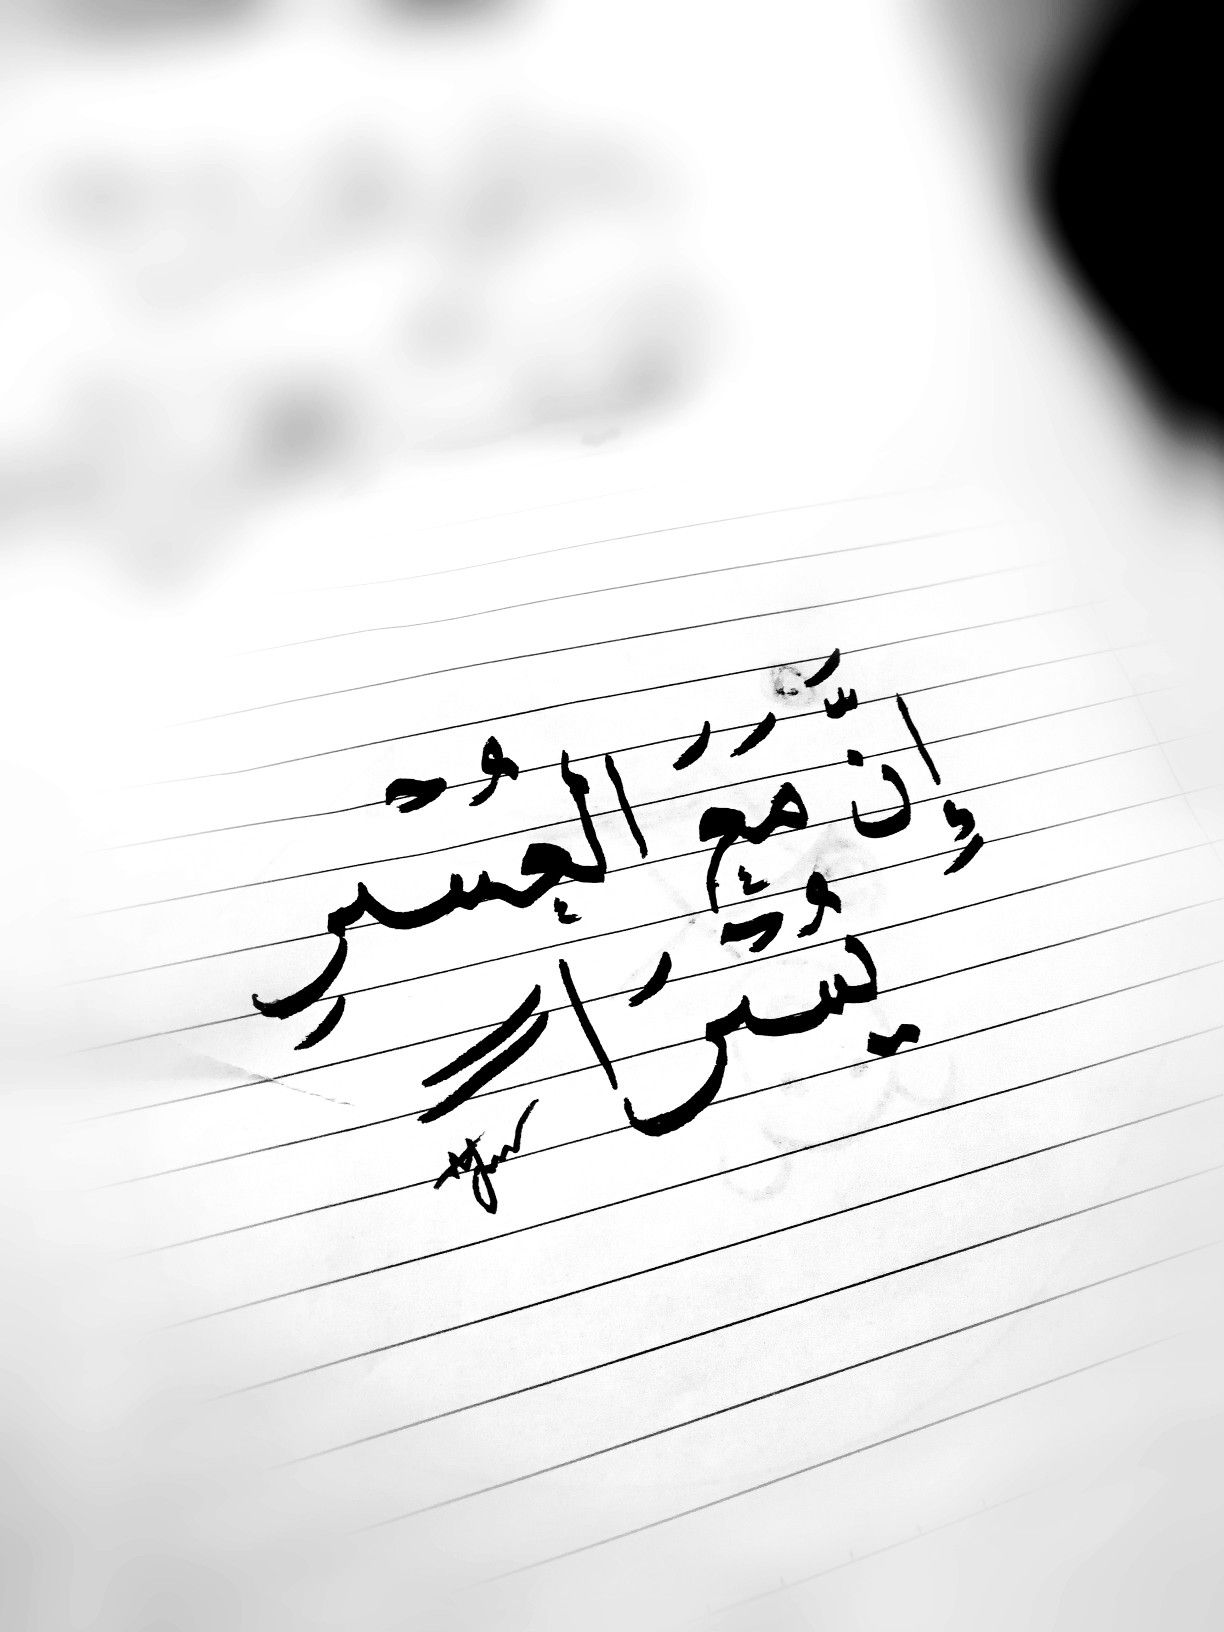 إِنَّ مَعَ الْعُسْرِ
يُسْرًا